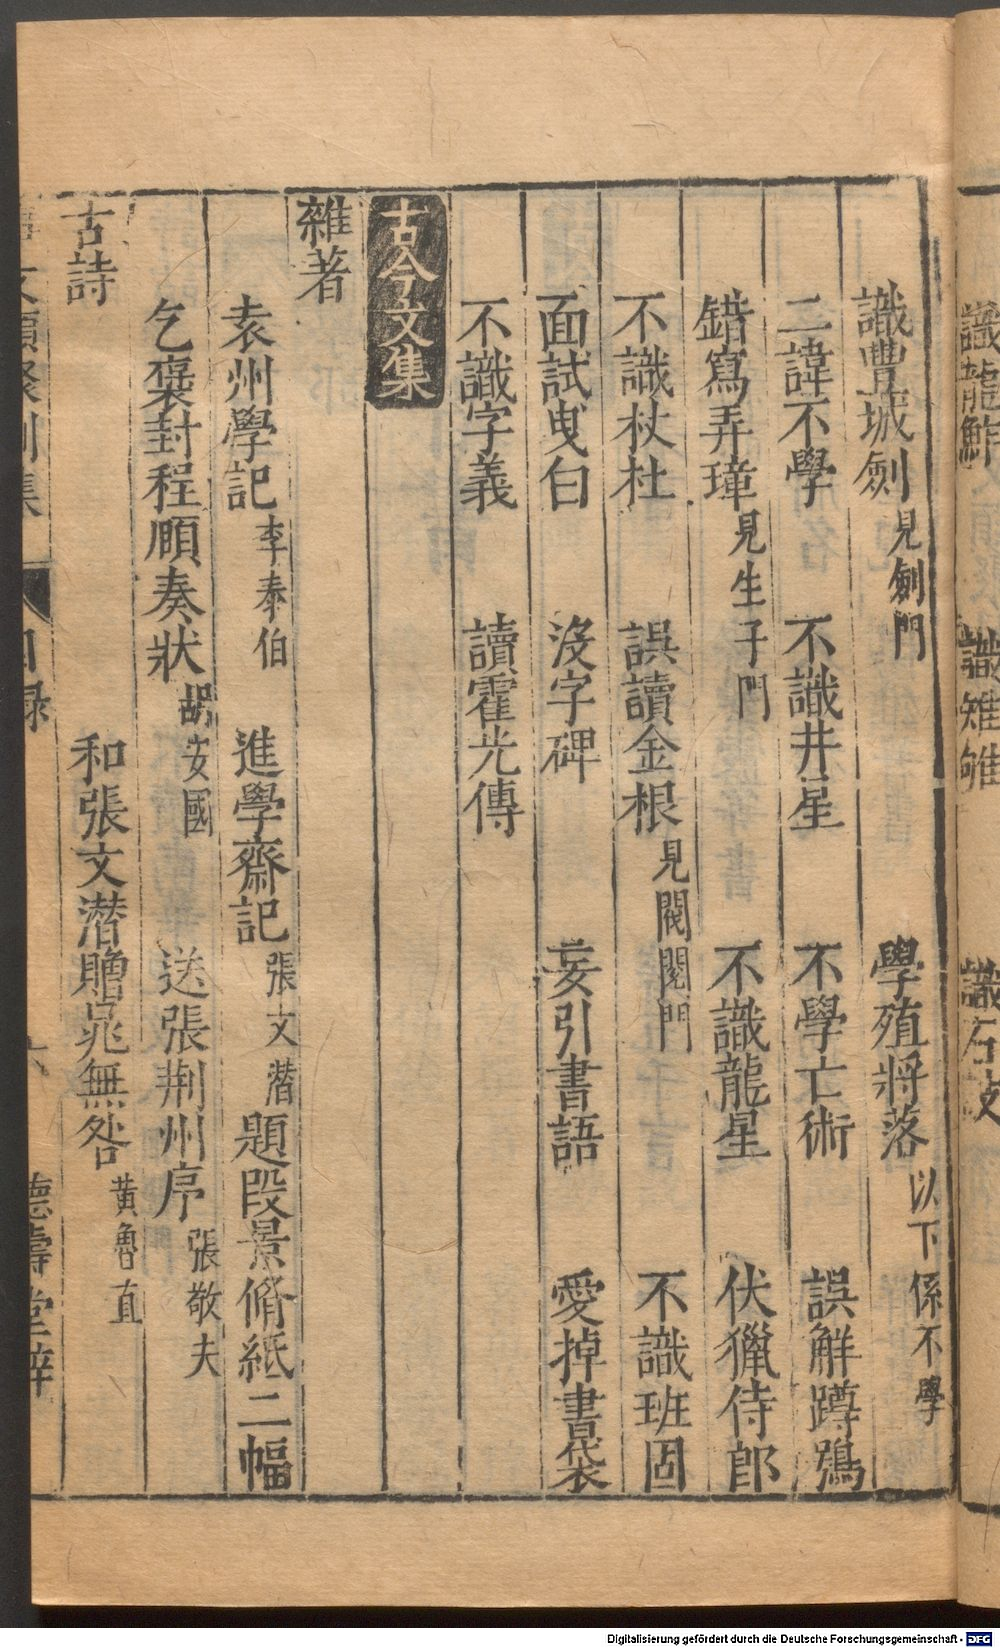 識龍鮓 識雉雊 識石鼓
識豐城劍見劍門 學殖將落以下係不學
二諱不學 不識井星 不學亡術 誤解蹲鴟
錯寫弄璋見生子門 不識龍星 伏獵侍郎
不識杕杜 誤讀金根見閥閱門 不識班固
面試曳白 沒字碑 妄引書語 愛掉書袋
不識字義 讀霍光傳
古今文集
雜著
袁州學記李泰伯 進學齋記張文潛 題段景脩紙二幅
乞褒封程頤奏狀胡安國 送張荆州序張敬夫
古詩
和張文潛贈晁無咎黃魯直
文類聚別集 目錄 六 德壽堂梓
Digitalisierung gefördert durch die Deutsche Forschungsgemeinschaft - DFG